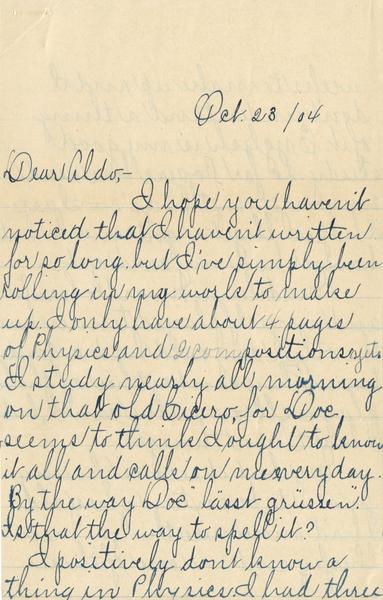 Oct. 23/04
Dear Aldo,-
I hope you haven't
noticed that I haven't written
for so long. but I've simply been
rolling in my work to make
up. I only have about 4 pages
of Physics and 2 compositions yet.
I study nearly all morning
on that old Cicero, for Doc
seems to think I ought to know
it all and calls on me every day.
By the way Doc "lässt grüssen".
Is that the way to spell it?
I positively don't know a
thing in Physics. I had three